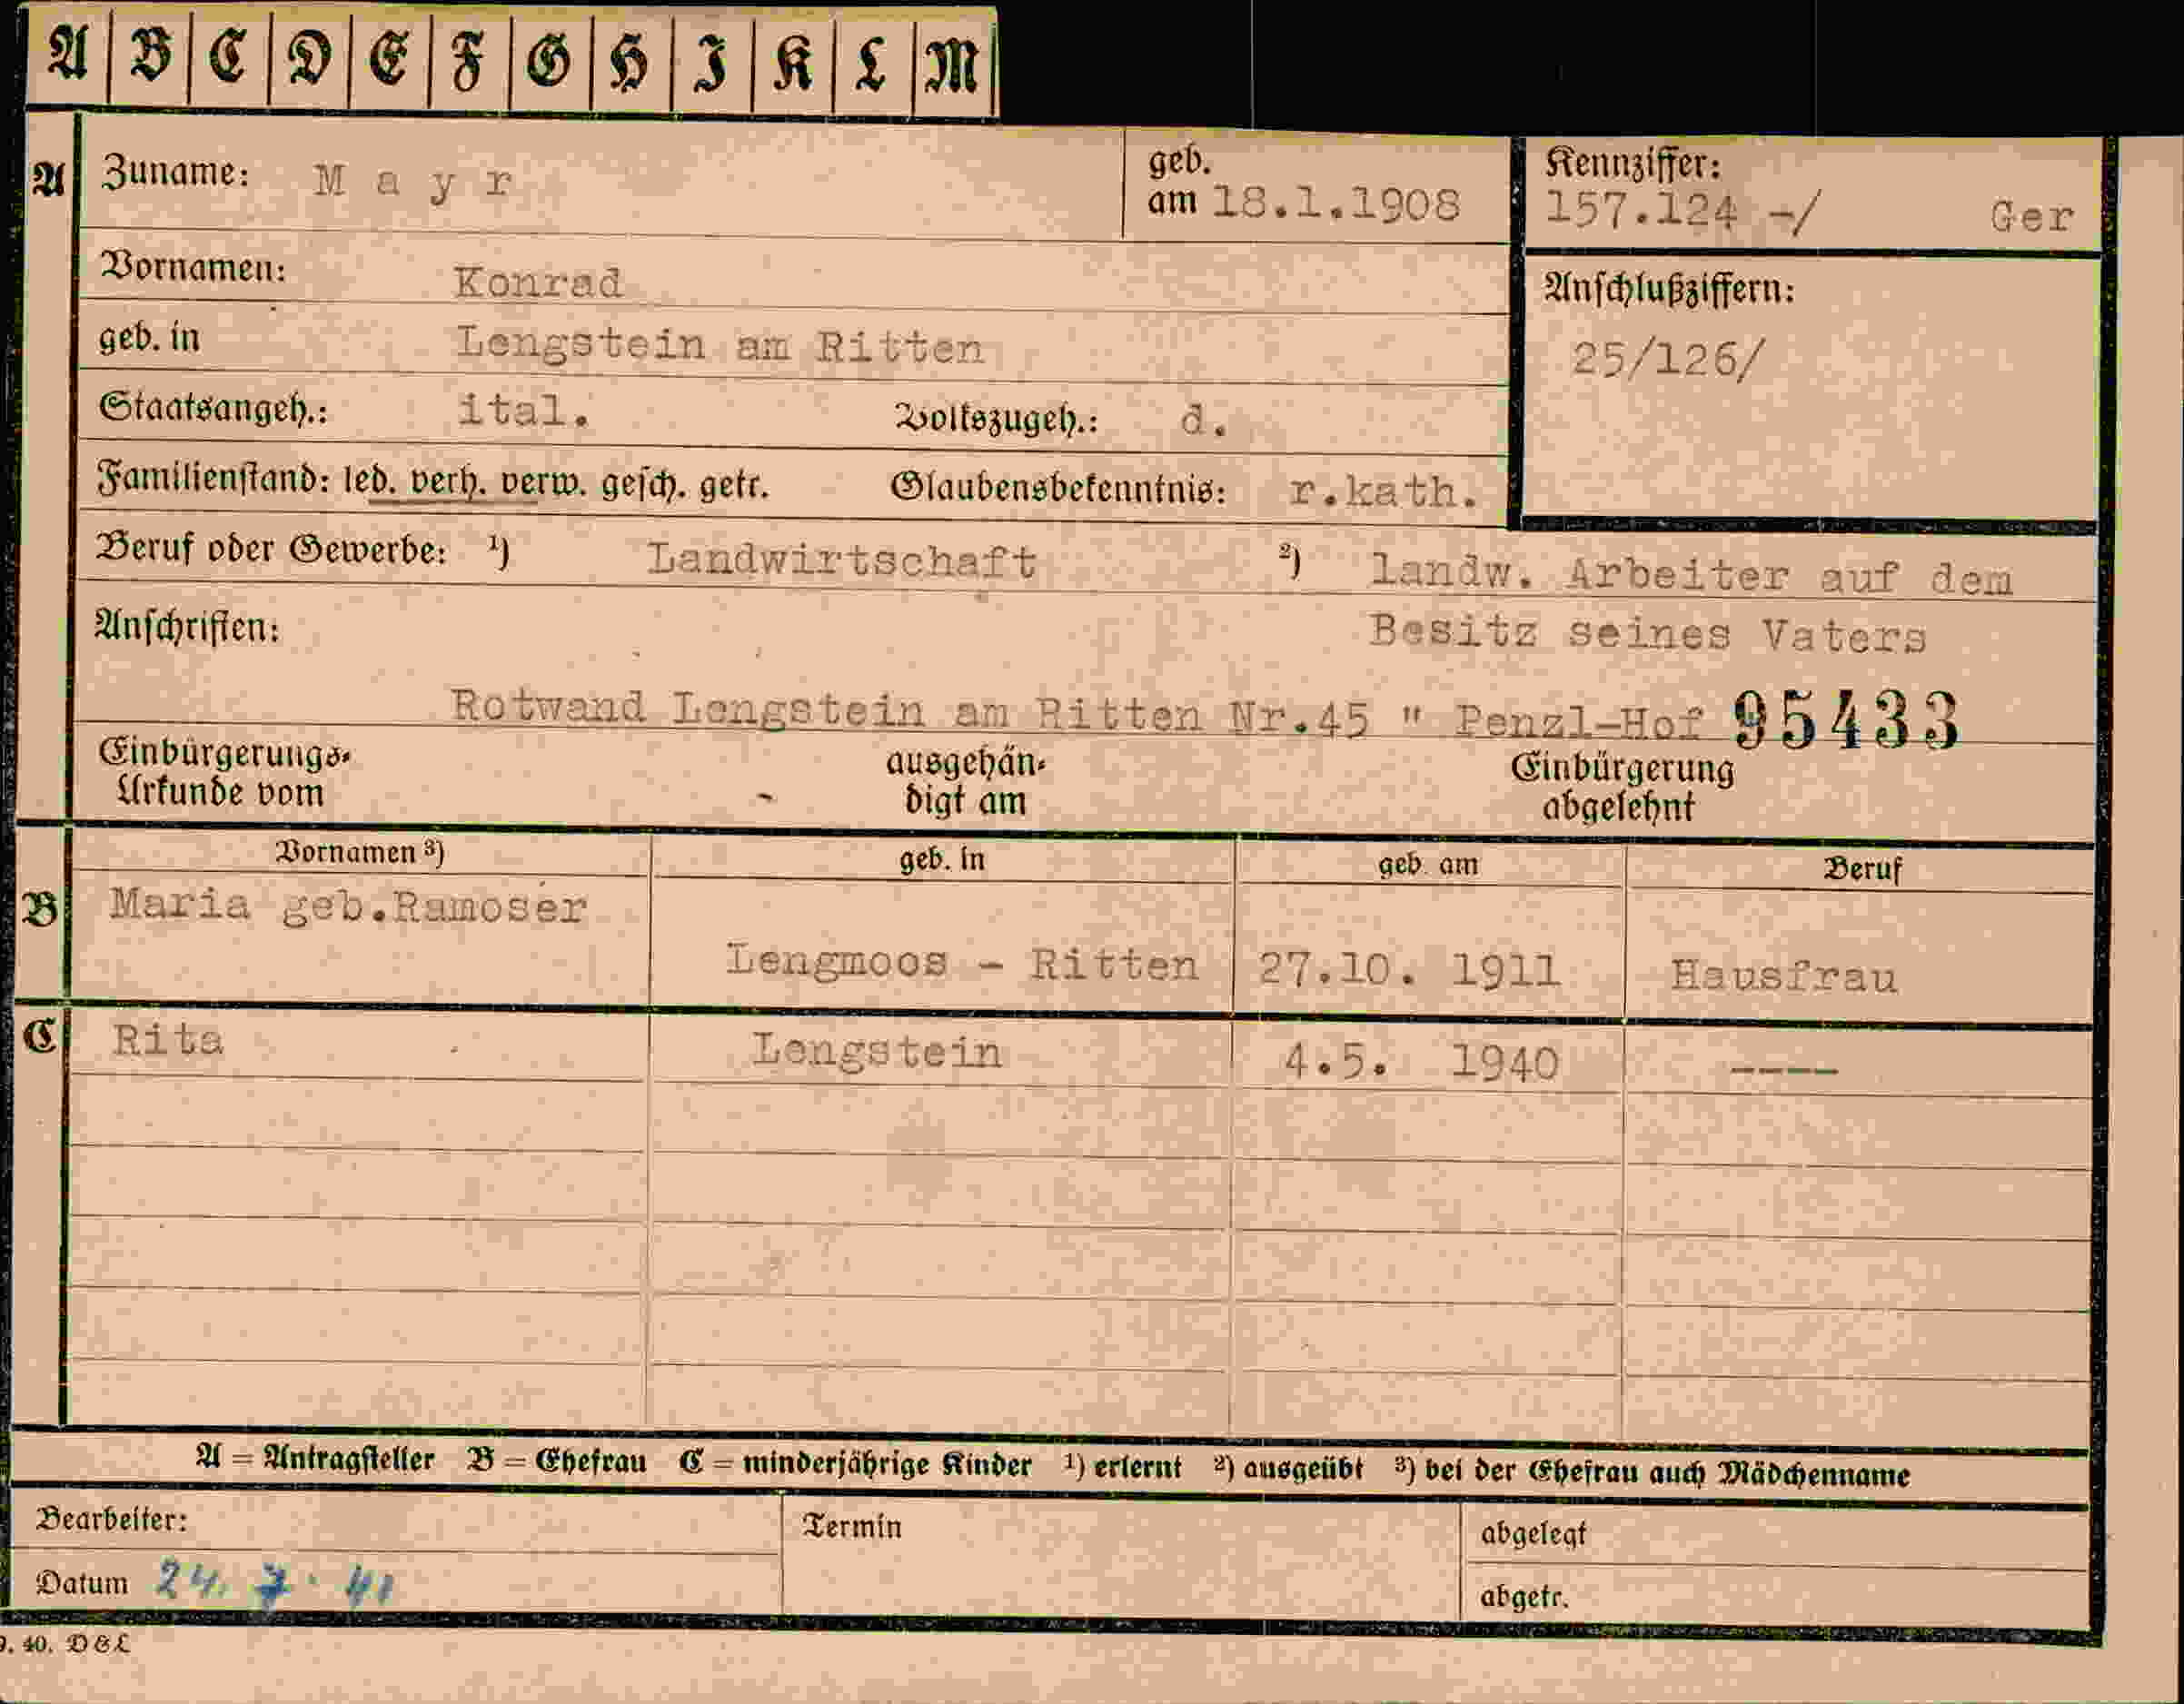 A B C D E F G H I K L M
A Zuname: Mayr geb. am 18.1.1908 Kennziffer: 157.124 -/ Ger
Vornamen: Konrad Anschlußziffern:
geb. in Lengstein am Ritten 25/126/
Staatsangeh.: ital. Volkszugeh.: d.
Familienstand: led. verh. verw. gesch. getr. Glaubensbekenntnis: r.kath.
Beruf oder Gewerbe: 1) Landwirtschaft 2) landw. Arbeiter auf dem
Anschriften: Besitz seines Vaters
Rotwand Lengstein am Ritten Nr.45 " Penzl-Hof 95433
Einbürgerungs- ausgehän- Einbürgerung
Urkunde vom - digt am abgelehnt
Vornamen 3) geb. in geb. am Beruf
B Maria geb.Ramoser
Lengmoos - Ritten 27.10. 1911 Hausfrau
C Rita Lengstein 4.5. 1940 ----
A = Antragsteller B = Ehefrau C = minderjährige Kinder 1) erlernt 2) ausgeübt 3) bei der Ehefrau auch Mädchenname
Bearbeiter: Termin abgelegt
Datum 24. 7. 41 abgetr.
9. 40. D&L